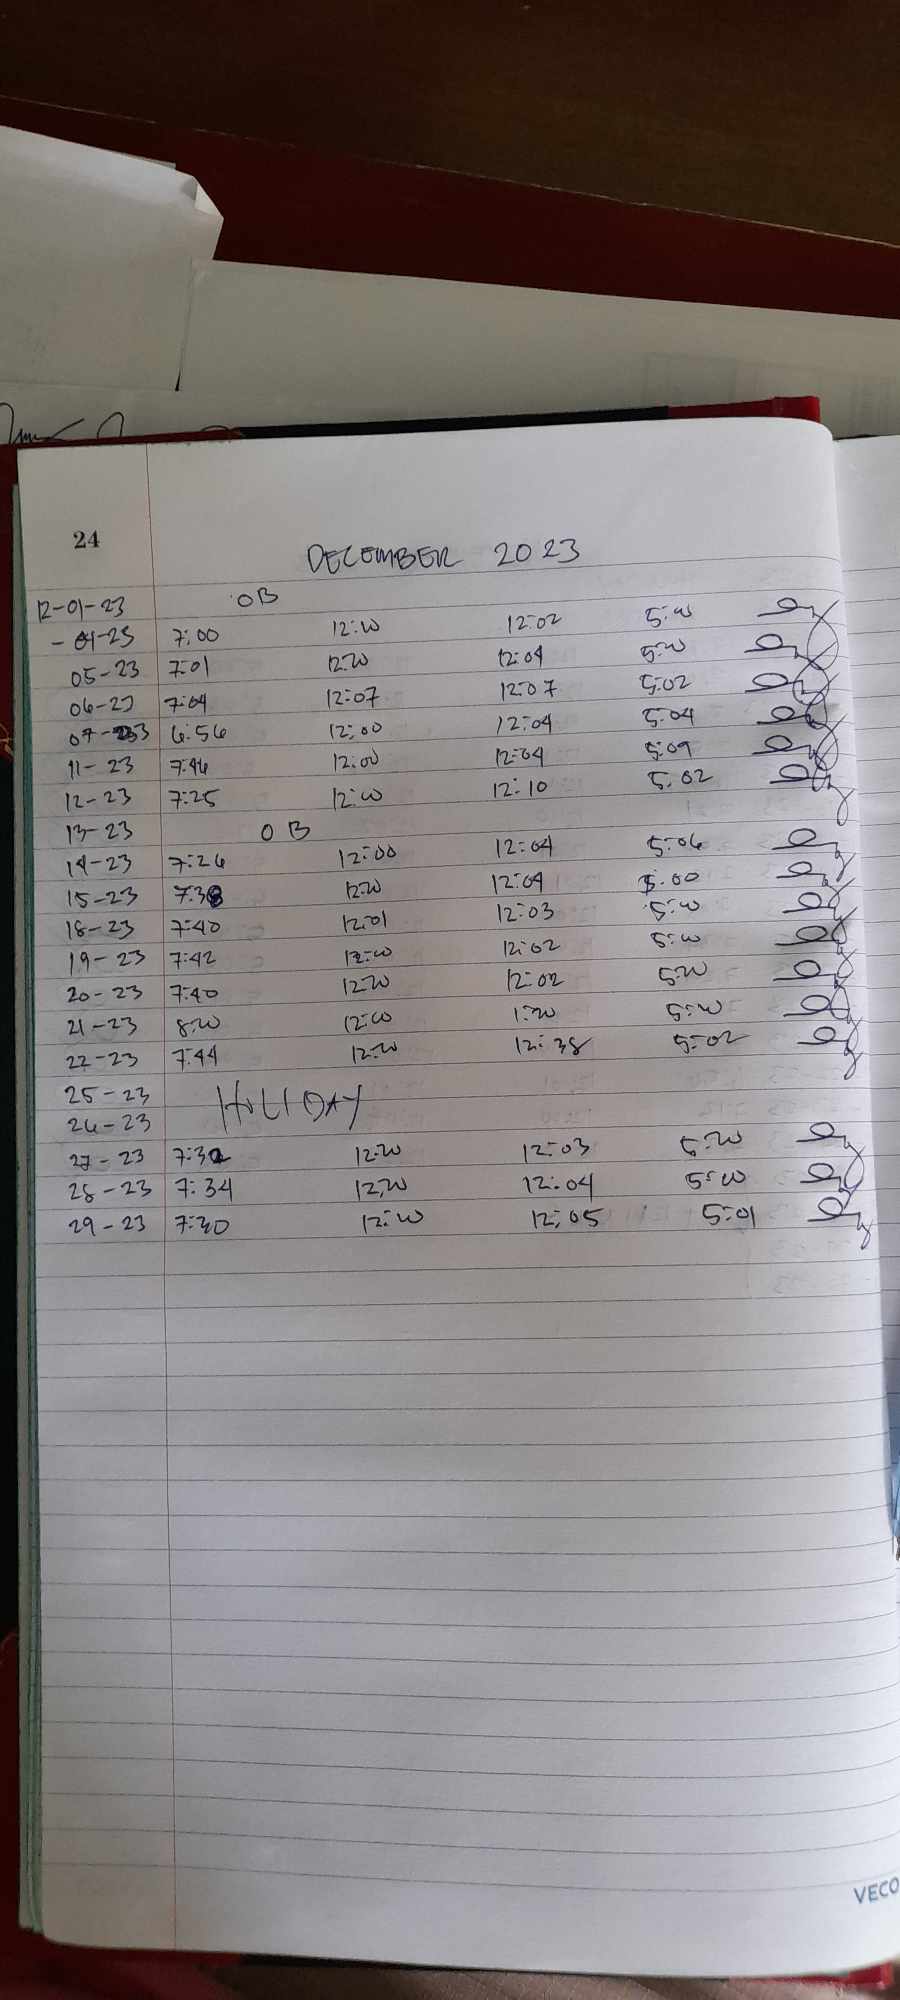 24
DECEMBER 2023
12-01-23 OB
- 04-23 7:00 12:00 12:02 5:00
05-23 7:01 12:00 12:04 5:00
06-23 7:04 12:07 12:07 5:02
07-23 6:56 12:00 12:04 5:04
11-23 7:46 12:00 12:04 5:09
12-23 7:25 12:00 12:10 5:02
13-23 OB
14-23 7:26 12:00 12:04 5:06
15-23 7:38 12:00 12:04 5:00
18-23 7:40 12:01 12:03 5:00
19-23 7:42 12:00 12:02 5:00
20-23 7:40 12:00 12:02 5:00
21-23 8:00 12:00 1:00 5:00
22-23 7:44 12:00 12:38 5:02
25-23 HOLIDAY
26-23
27-23 7:32 12:00 12:03 5:00
28-23 7:34 12:00 12:04 5:00
29-23 7:30 12:00 12:05 5:01
VECO